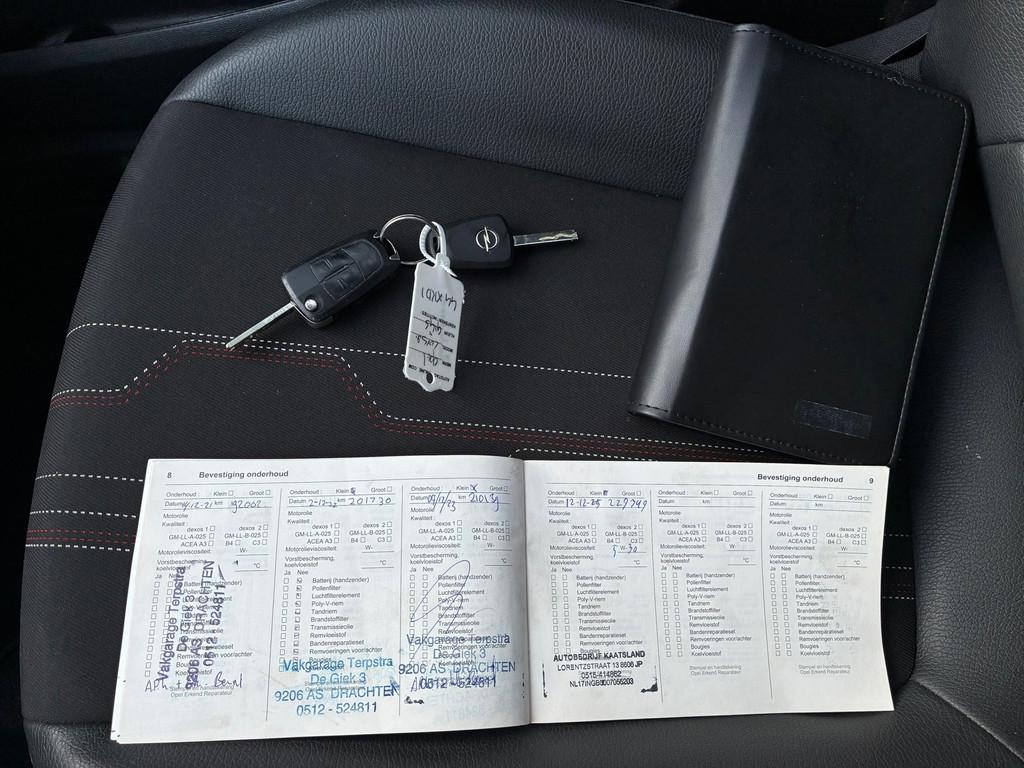 8 Bevestiging onderhoud
Onderhoud: Klein Groot
km 192062
Motorolie
Kwaliteit:
dexos 1 dexos 2
GM-LL-A-025 GM-LL-B-025
ACEA A3 B4 C3
Motorolieviscositeit: W-
Vorstbescherming,
koelvloeistof °C
Ja Nee
Batterij (handzender)
Pollenfilter
Transmissieolie
Remvloeistof
Bandenreparatieset
Remvoeringen voor/achter
Vakgarage Terpstra
De Giek 3
9206 AS DRACHTEN
0512 - 524811
Onderhoud: Klein Groot
Datum km 201730
Motorolie
Kwaliteit:
dexos 1 dexos 2
GM-LL-A-025 GM-LL-B-025
ACEA A3 B4 C3
Motorolieviscositeit: W-
Vorstbescherming,
koelvloeistof °C
Ja Nee
Batterij (handzender)
Pollenfilter
Luchtfilterelement
Poly-V-riem
Tandriem
Brandstoffilter
Transmissieolie
Remvloeistof
Bandenreparatieset
Remvoeringen voor/achter
Vakgarage Terpstra
De Giek 3
9206 AS DRACHTEN
0512 - 524811
Onderhoud: Klein Groot
Datum km
Motorolie
Kwaliteit:
dexos 1 dexos 2
GM-LL-A-025 GM-LL-B-025
ACEA A3 B4 C3
Motorolieviscositeit: W-
Vorstbescherming,
koelvloeistof °C
Ja Nee
Batterij (handzender)
Pollenfilter
Luchtfilterelement
Poly-V-riem
Tandriem
Brandstoffilter
Transmissieolie
Remvloeistof
Bandenreparatieset
Remvoeringen voor/achter
Vakgarage Terpstra
De Giek 3
9206 AS DRACHTEN
0512 - 524811
Bevestiging onderhoud 9
Onderhoud: Klein Groot
Datum 12-12-25 229749
Motorolie
Kwaliteit:
dexos 1 dexos 2
GM-LL-A-025 GM-LL-B-025
ACEA A3 B4 C3
Motorolieviscositeit: 5 W-30
Vorstbescherming,
koelvloeistof °C
Ja Nee
Batterij (handzender)
Pollenfilter
Luchtfilterelement
Poly-V-riem
Tandriem
Brandstoffilter
Transmissieolie
Remvloeistof
Bandenreparatieset
Remvoeringen voor/achter
Bougies
AUTOBEDRIJF KAATSLAND
LORENTZSTRAAT 13 8606 JP
0515-414862
Onderhoud: Klein Groot
Datum km
Motorolie
Kwaliteit:
dexos 1 dexos 2
GM-LL-A-025 GM-LL-B-025
ACEA A3 B4 C3
Motorolieviscositeit: W-
Vorstbescherming,
koelvloeistof °C
Ja Nee
Batterij (handzender)
Pollenfilter
Luchtfilterelement
Poly-V-riem
Tandriem
Brandstoffilter
Transmissieolie
Remvloeistof
Bandenreparatieset
Remvoeringen voor/achter
Bougies
Koelvloeistof
Stempel en handtekening
Opel Erkend Reparateur
Onderhoud: Klein Groot
Datum km
Motorolie
Kwaliteit:
dexos 1 dexos 2
GM-LL-A-025 GM-LL-B-025
ACEA A3 B4 C3
Motorolieviscositeit: W-
Vorstbescherming,
koelvloeistof °C
Ja Nee
Batterij (handzender)
Pollenfilter
Luchtfilterelement
Poly-V-riem
Tandriem
Brandstoffilter
Transmissieolie
Remvloeistof
Bandenreparatieset
Remvoeringen voor/achter
Bougies
Koelvloeistof
Stempel en handtekening
Opel Erkend Reparateur